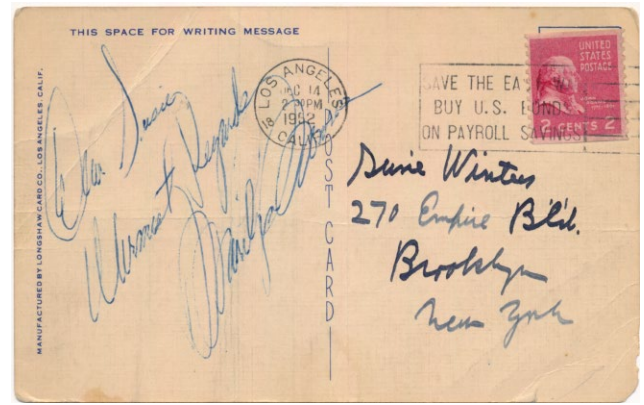 THIS SPACE FOR WRITING MESSAGE
MANUFACTURED BY LONGSHAW CARD CO., LOS ANGELES, CALIF.
Dear Susie
Warmest Regards
LOS ANGELES
DEC 14
PM
1952
CALIF.
SAVE THE
BUY U.S. BONDS
ON PAYROLL SAVINGS
UNITED
STATES
POSTAGE
2 CENTS 2
POST CARD
Susie Winters
270 Empire Bld.
Brooklyn
New York